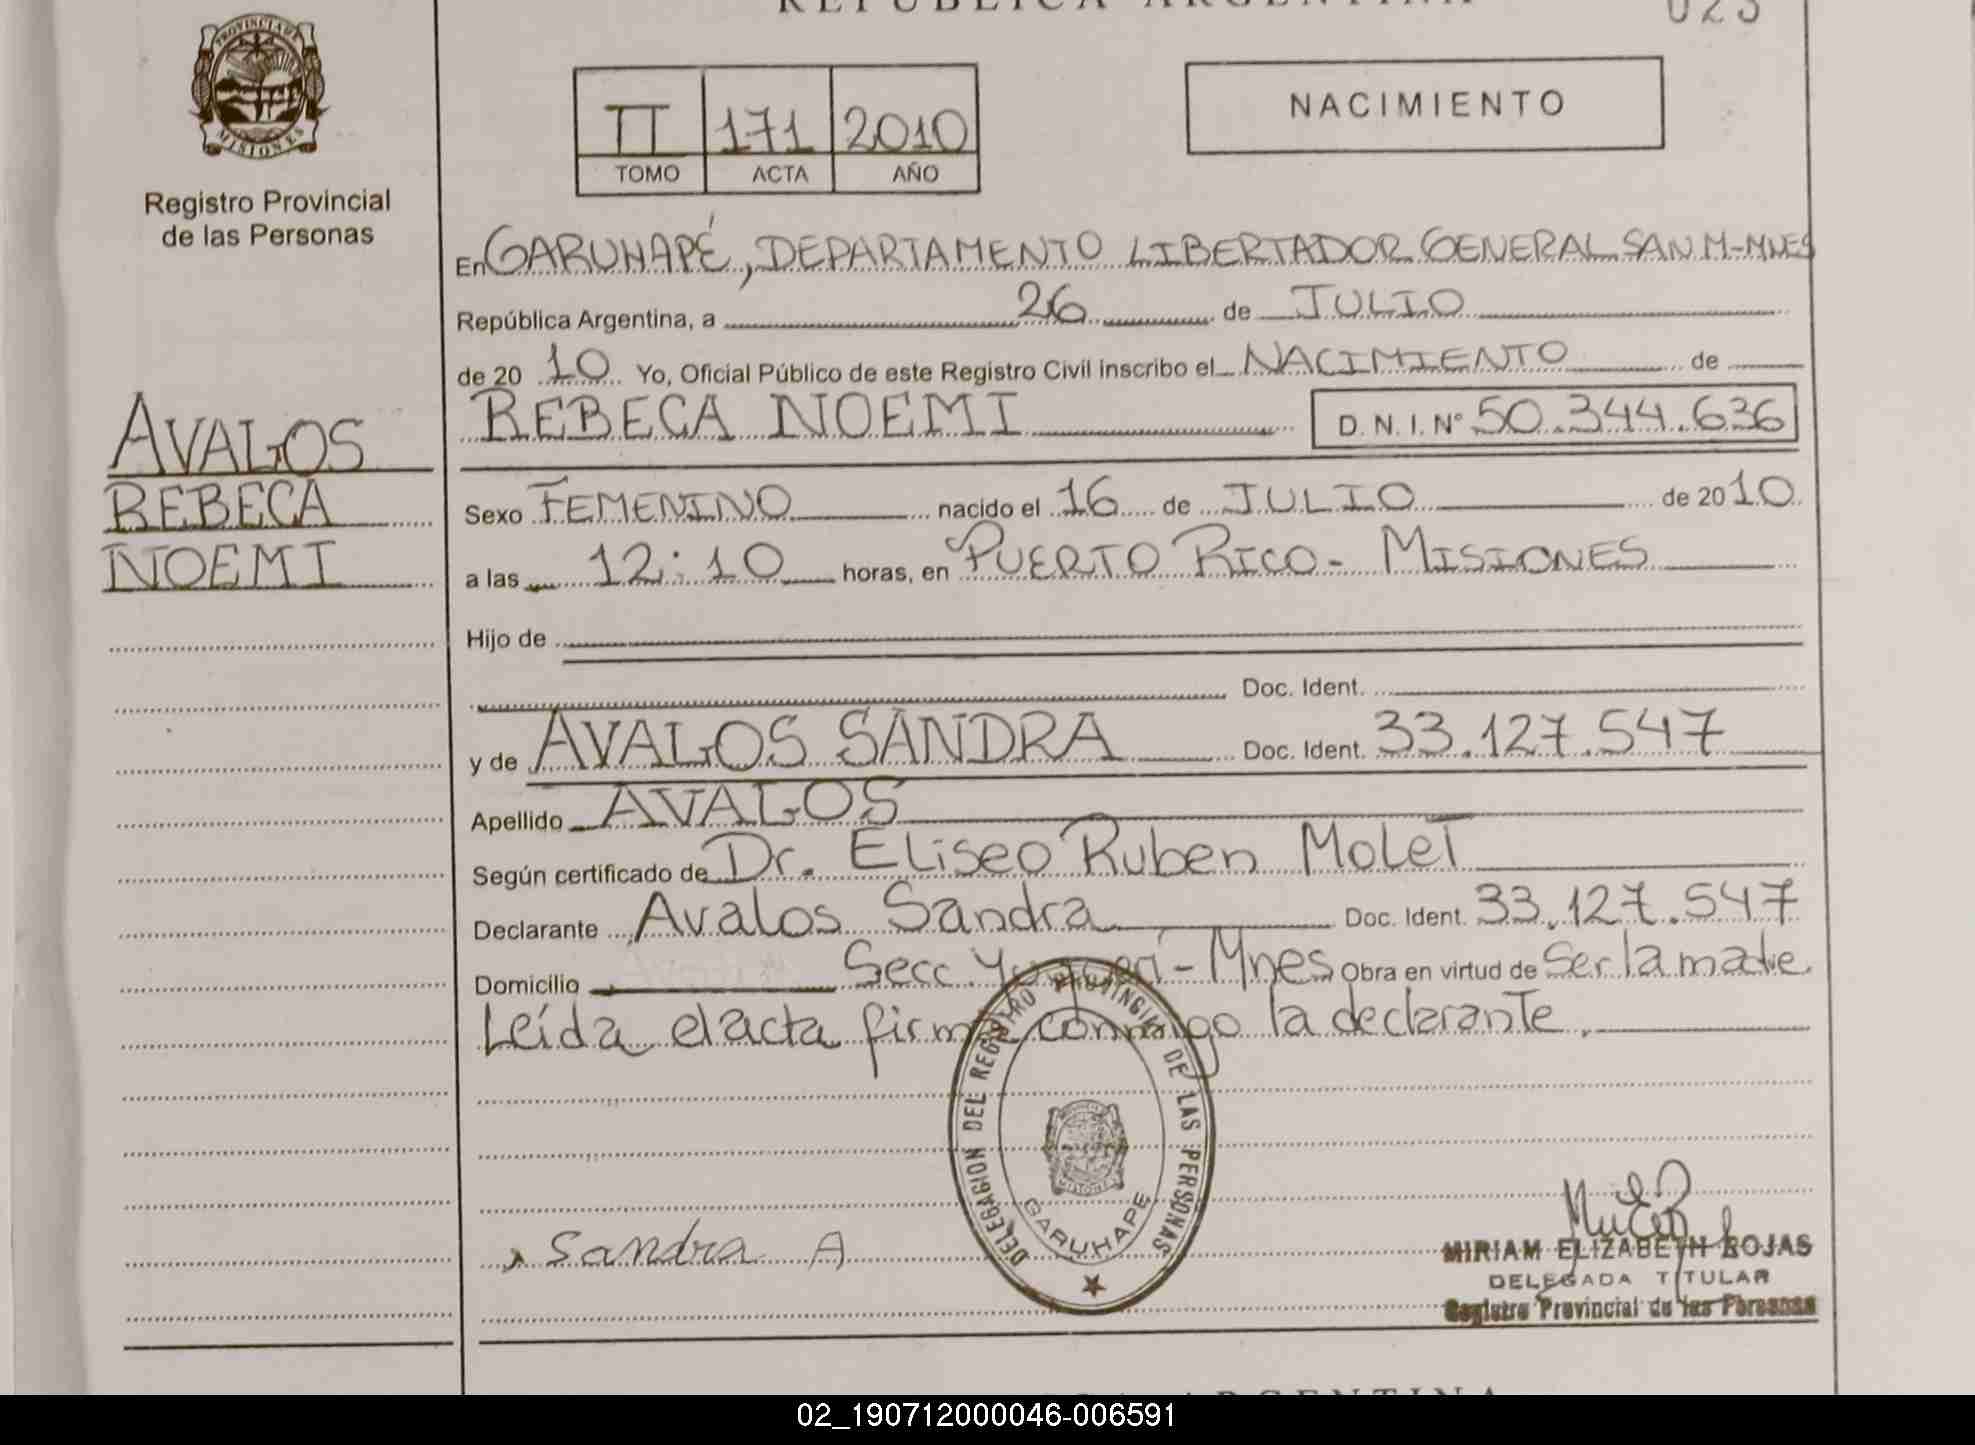 REPUBLICA ARGENTINA
023
PROVINCIA DE
MISIONES
Registro Provincial
de las Personas
II 171 2010
TOMO ACTA AÑO
NACIMIENTO
En GARUHAPÉ, DEPARTAMENTO LIBERTADOR GENERAL SAN M-MNES
República Argentina, a 26 de JULIO
de 20 10 Yo, Oficial Público de este Registro Civil inscribo el NACIMIENTO de
REBECA NOEMI D. N. I. Nº 50.344.636
AVALOS
REBECA
NOEMI
Sexo FEMENINO nacido el 16 de JULIO de 20 10
a las 12:10 horas, en PUERTO RICO - MISIONES
Hijo de
Doc. Ident.
y de AVALOS SANDRA Doc. Ident. 33.127.547
Apellido AVALOS
Según certificado de Dr. Eliseo Ruben Molet
Declarante Avalos Sandra Doc. Ident. 33.127.547
Domicilio Secc. - Mnes Obra en virtud de Ser la madre
Leída el acta firma conmigo la declarante.
DELEGACION DEL REGISTRO PROVINCIAL DE LAS PERSONAS
MISIONES
GARUHAPE
Sandra A
MIRIAM ELIZABETH ROJAS
DELEGADA TITULAR
Registro Provincial de las Personas
02_190712000046-006591